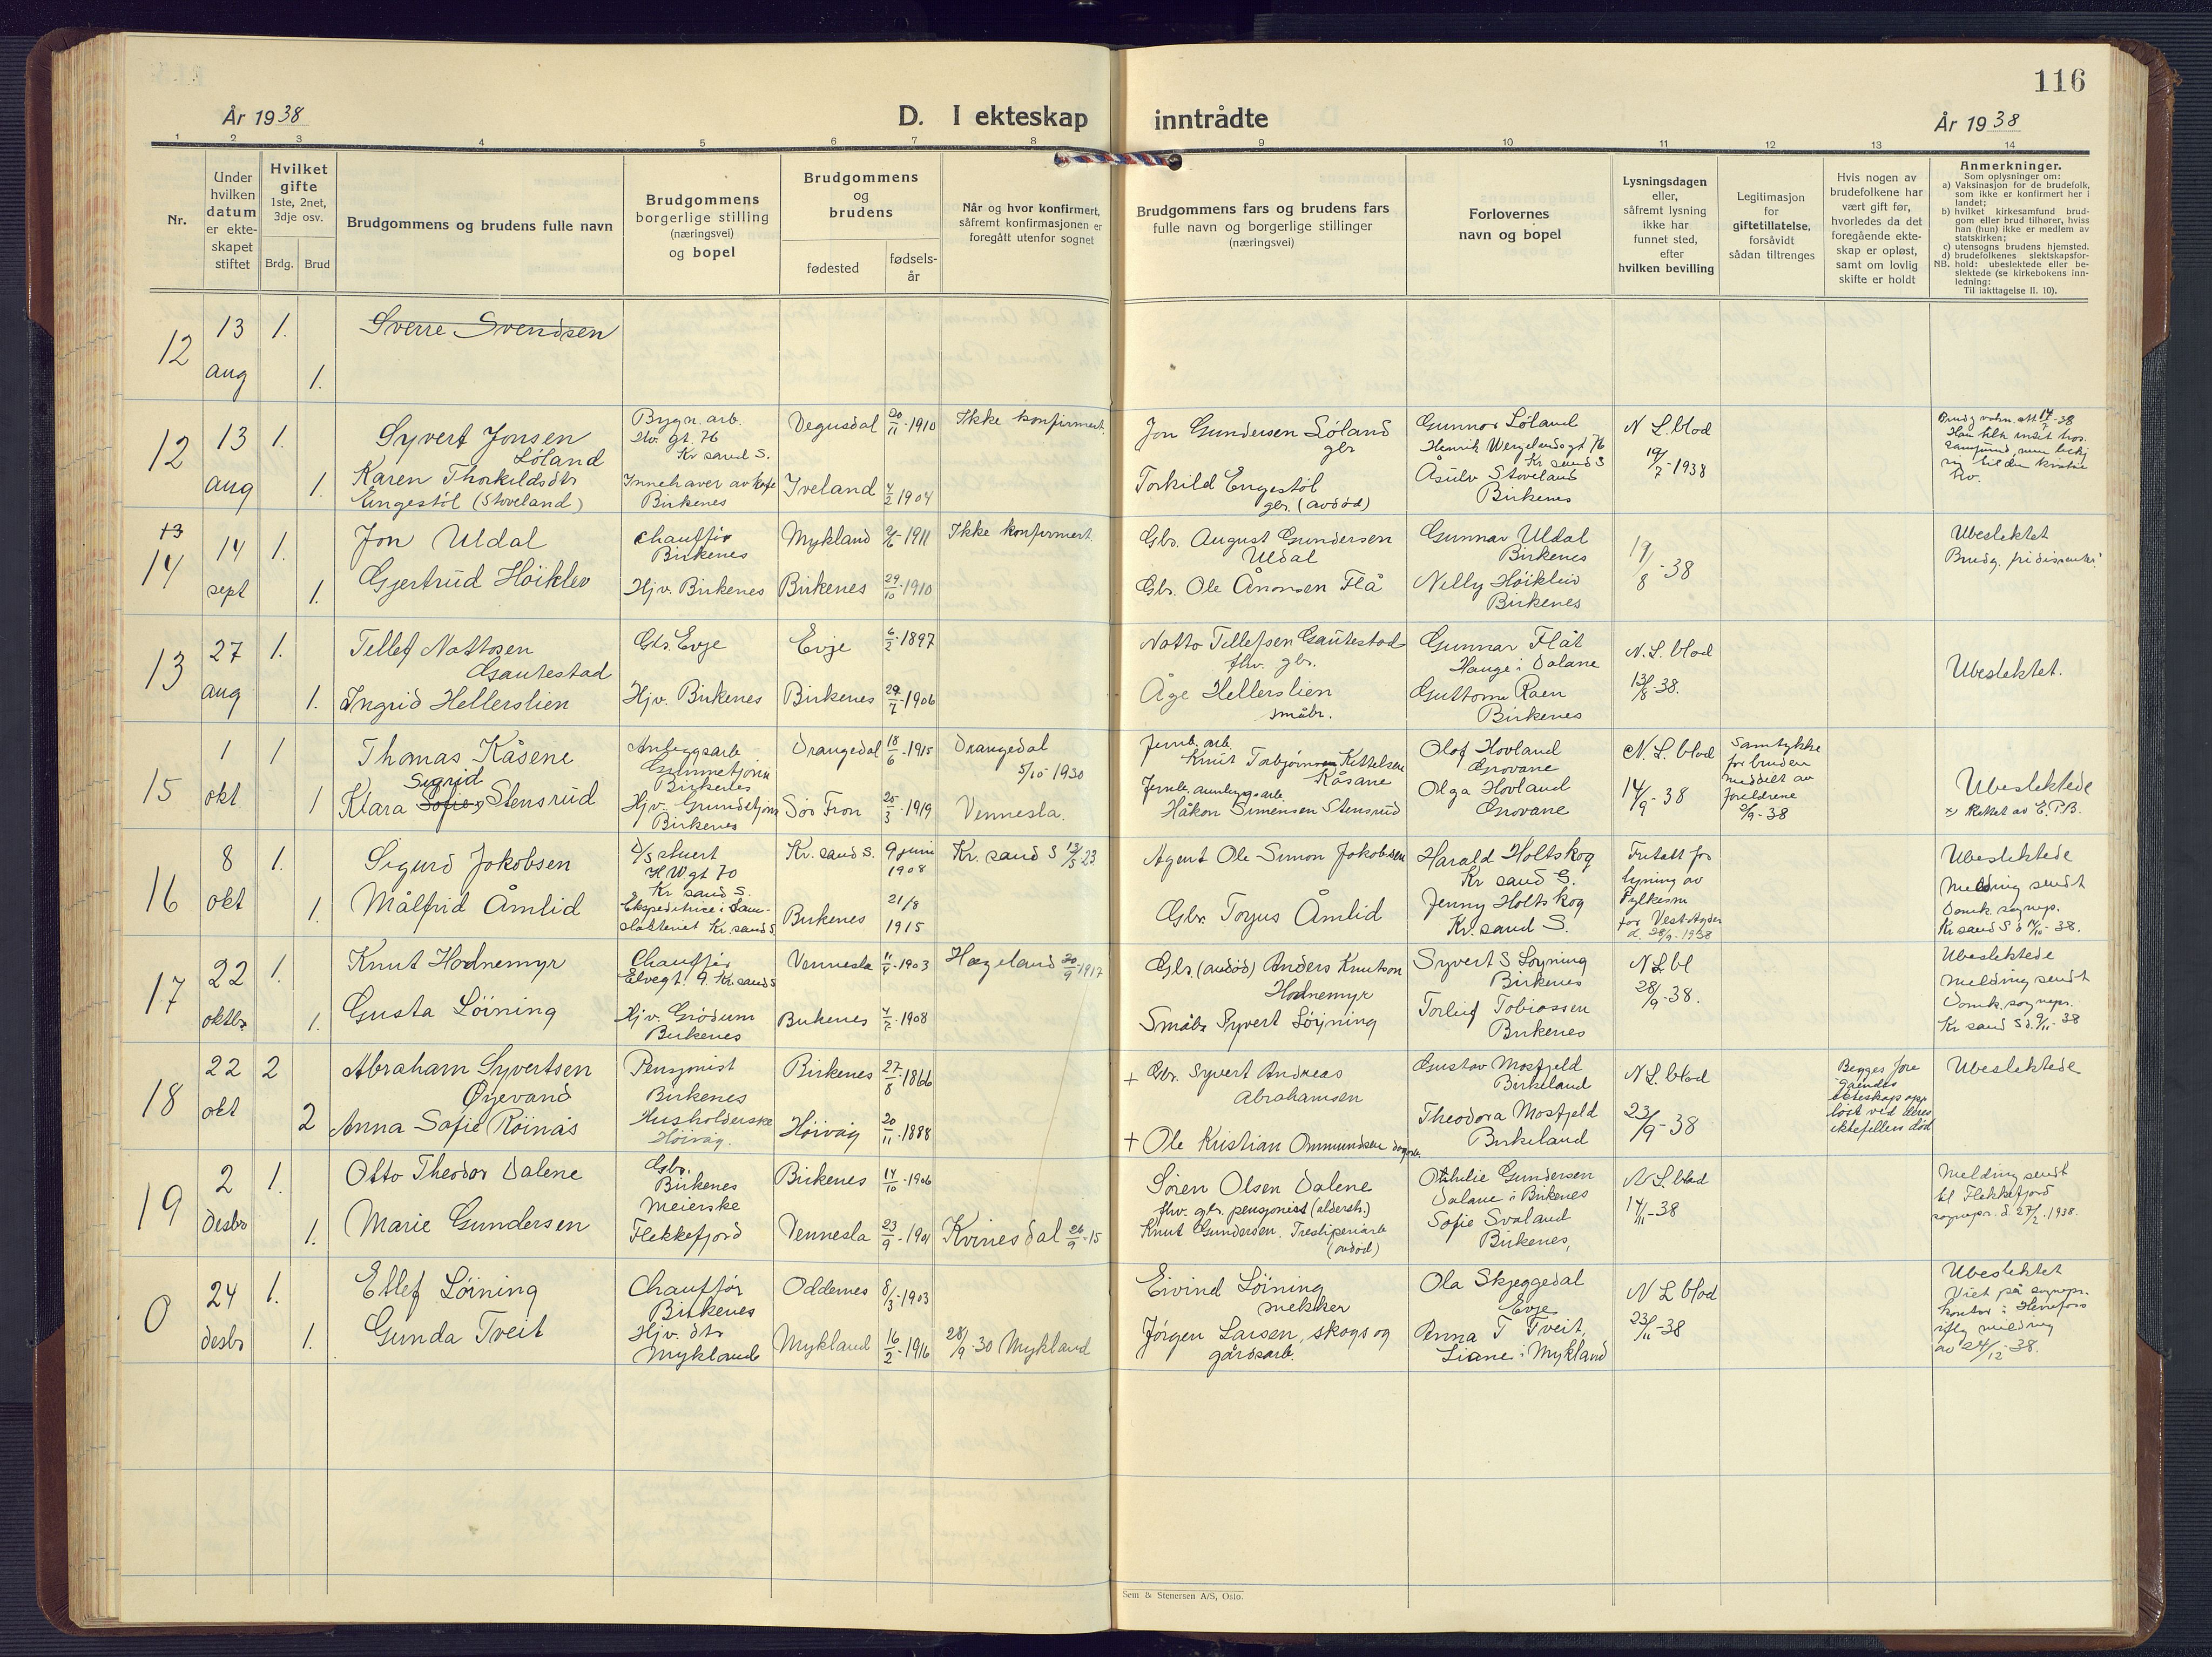 116
År 1938
D. I ekteskap inntrådte
År 1938
1 2 3 4 5 6 7 8 9 10 11 12 13 14
Nr.
Under hvilken datum er ekte-skapet stiftet
Hvilket gifte 1ste, 2net, 3dje osv.
Brdg. Brud
Brudgommens og brudens fulle navn
Brudgommens borgerlige stilling (næringsvei) og bopel
Brudgommens og brudens
fødested
fødsels-år
Når og hvor konfirmert, såfremt konfirmasjonen er foregått utenfor sognet
Brudgommens fars og brudens fars fulle navn og borgerlige stillinger (næringsvei)
Forlovernes navn og bopel
Lysningsdagen eller, såfremt lysning ikke har funnet sted, efter hvilken bevilling
Legitimasjon for giftetillatelse, forsåvidt sådan tiltrenges
Hvis nogen av brudefolkene har vært gift før, hvorledes da det foregående ekte-skap er opløst, samt om lovlig skifte er holdt
Anmerkninger.
Som oplysninger om:
a) Vaksinasjon for de brudefolk, som ikke er konfirmert her i landet;
b) hvilket kirkesamfund brud-gom eller brud tilhører, hviss han (hun) ikke er medlem av statskirken;
c) utensogns brudens hjemsted.
d) brudefolkenes slektskapsfor-hold: ubeslektede eller be-slektede (se kirkebokens inn-ledning:
NB.
Til iakttagelse II. 10).
12
13 aug
1.
1.
Sverre Svendsen
12
13 aug
1.
1.
Syvert Jonsen Løland
Karen Thorkildsdtr Engestøl (Stoveland)
Bygn. arb.
Hw. gt. 76
Kr sand S.
Innehaver av kafe
Birkenes
Vegusdal 20/11-1910
Iveland 4/2 1904
Ikke konfirmert.
Jon Gundersen Løland
gbr
Torkild Engestøl
gbr. (avdød)
Gunnar Løland
Henrik Wergelands gt 76
Kr sand S
Åsulv Stoveland
Birkenes
N L.blod
19/7-1938
13
14
14 sept
1.
1.
Jon Uldal
Gjertrud Høiklev
Chauffør
Birkenes
Hjv. Birkenes
Mykland 9/6-1911
Birkenes 29/10-1910
Ikke konfirmert.
Gbr. August Gundersen Uldal
Gbr. Ole Ånonsen Flå
Gunnar Uldal
Birkenes
Nelly Høikleiv
Birkenes
19/8-38
Ubeslektet
13
27 aug
1.
1.
Tellef Nottosen Gautestad
Ingrid Hellerslien
Gbr. Evje
Hjv. Birkenes
Evje 6/2-1897
Birkenes 29/7-1906
Notto Tellefsen Gautestad
fhv. gbr.
Åge Hellerslien
småbr.
Gunnar Flåt
Hauge i Dalane
Guttorm Raen
Birkenes
N. L. blod
13/8-38.
Ubeslektet.
15
1 okt
1
1
Thomas Kåsene
Sigrid
Klara Sofie x) Stensrud
Anleggsarb
Birkenes
Hjv. Grundetjønn
Birkenes
Drangedal 18/6-1915
Sør Fron 25/3-1919
Drangedal
5/10-1930
Vennesla.
Jernb. arb.
Knut Torbjørnsen Kittelsen Kåsane
Jernb. anleggsarb
Håkon Simensen Stensrud
Olaf Hovland
Grovane
Olga Hovland
Grovane
N. L. blod
14/9-38
Samtykke
for bruden
meddelt av
foreldrene
2/9-38
Ubeslektede
x) Rettet av E.P.B.
16
8 okt
1.
1.
Sigurd Jakobsen
Målfrid Åmlid
D/S stuert
H W gt 70
Kr sand S.
Ekspeditrice i Sam-
slakteriet Kr.sand S
Kr. sand S. 9 juni 1908
Birkenes 21/8 1915
Kr. sand S 13/5 23
Agent Ole Simon Jakobsen
Gbr Torjus Åmlid
Harald Holtskog
Kr sand S.
Jenny Holtskog
Kr. sand S.
Fritatt for
lysning av
Fylkesm
for Vest-Agder
d. 28/9-1938
Ubeslektede
Melding sendt
Domk. sognep.
Kr sand S d 14/10-38.
17
22 oktbr
1.
1.
Knut Hodnemyr
Gusta Løining
Chauffør
Elvegt. 9. Kr.sand S
Hjv. Grødum
Birkenes
Vennesla 11/9-1903
Birkenes 4/2-1908
Hægeland 30/9-1917
Gbr. (avdød) Anders Knutson Hodnemyr
Småbr Syvert Løyning
Syvert S Løyning
Birkenes
Torleif Tobiassen
Birkenes
N L bl
28/9-38.
Ubeslektede
Melding sendt
Domk. sognepr.
Kr sand S d. 9/11-38
18
22 okt
2
2
Abraham Syvertsen Øyevand
Anna Sofie Röinås
Pensjonist
Birkenes
Husholderske
Høivåg.
Birkenes 27/8-1866
Høivåg 20/11-1888
+ Gbr. Syvert Andreas Abrahamsen
+ Ole Kristian Ommundsen
Gustav Mosfjeld
Birkeland
Theodora Mosfjeld
Birkeland
N L. blod
23/9-38
Begges fore
gående
ekteskap opp
løst ved deres
ektefellers død
Ubeslektede
19
2 desbr
1.
1.
Otto Theodor Dalene
Marie Gundersen
Gbr.
Birkenes
Meierske
Flekkefjord
Birkenes 14/10-1906
Vennesla 23/9-1901
Kvinesdal 26/9-15
Søren Olsen Dalene
fhv. gbr. pensjonist (alderst.)
Knut Gundersen. Tresliperiarb
(avdød)
Othilie Gundersen
Dalane i Birkenes
Sofie Svaland
Birkenes,
N L blad
14/11-38
Melding sendt
til Flekkefjord
sognepr. d 27/2.1938.
0
24 desbr
1.
1.
Ellef Løining
Gunda Tveit
Chauffør
Birkenes
Hjv. dtr
Mykland
Oddernes 8/3-1903
Mykland 16/2-1916
28/9-30 Mykland
Eivind Løining
snekker
Jørgen Larsen, skogs og
gårdsarb.
Ola Skjeggedal
Evje
Anna T Tveit,
Liane i Mykland
N L blod
23/11-38
Ubeslektet
Viet på sognepr.
kontor i Herefoss
iflg melding
av 24/12-38.
Sem & Stenersen A/S, Oslo.